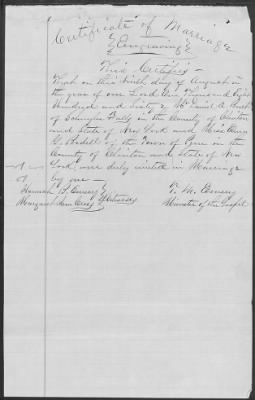 Certificate of Marriage
Engraving
This Certifies
That on this Ninth day of August in
the year of our Lord One Thousand Eight
Hundred and Sixty & Mr Daniel A
of Schuyler Falls in the County of Clinton
and State of New York and Miss
G. of the Town of Peru in the
County of Clinton and State of New
York were duly united in Marriage
by me
Hannah F. Emery
Margaret Ann Witnesses
P. M. Emery
Minister of the Gospel